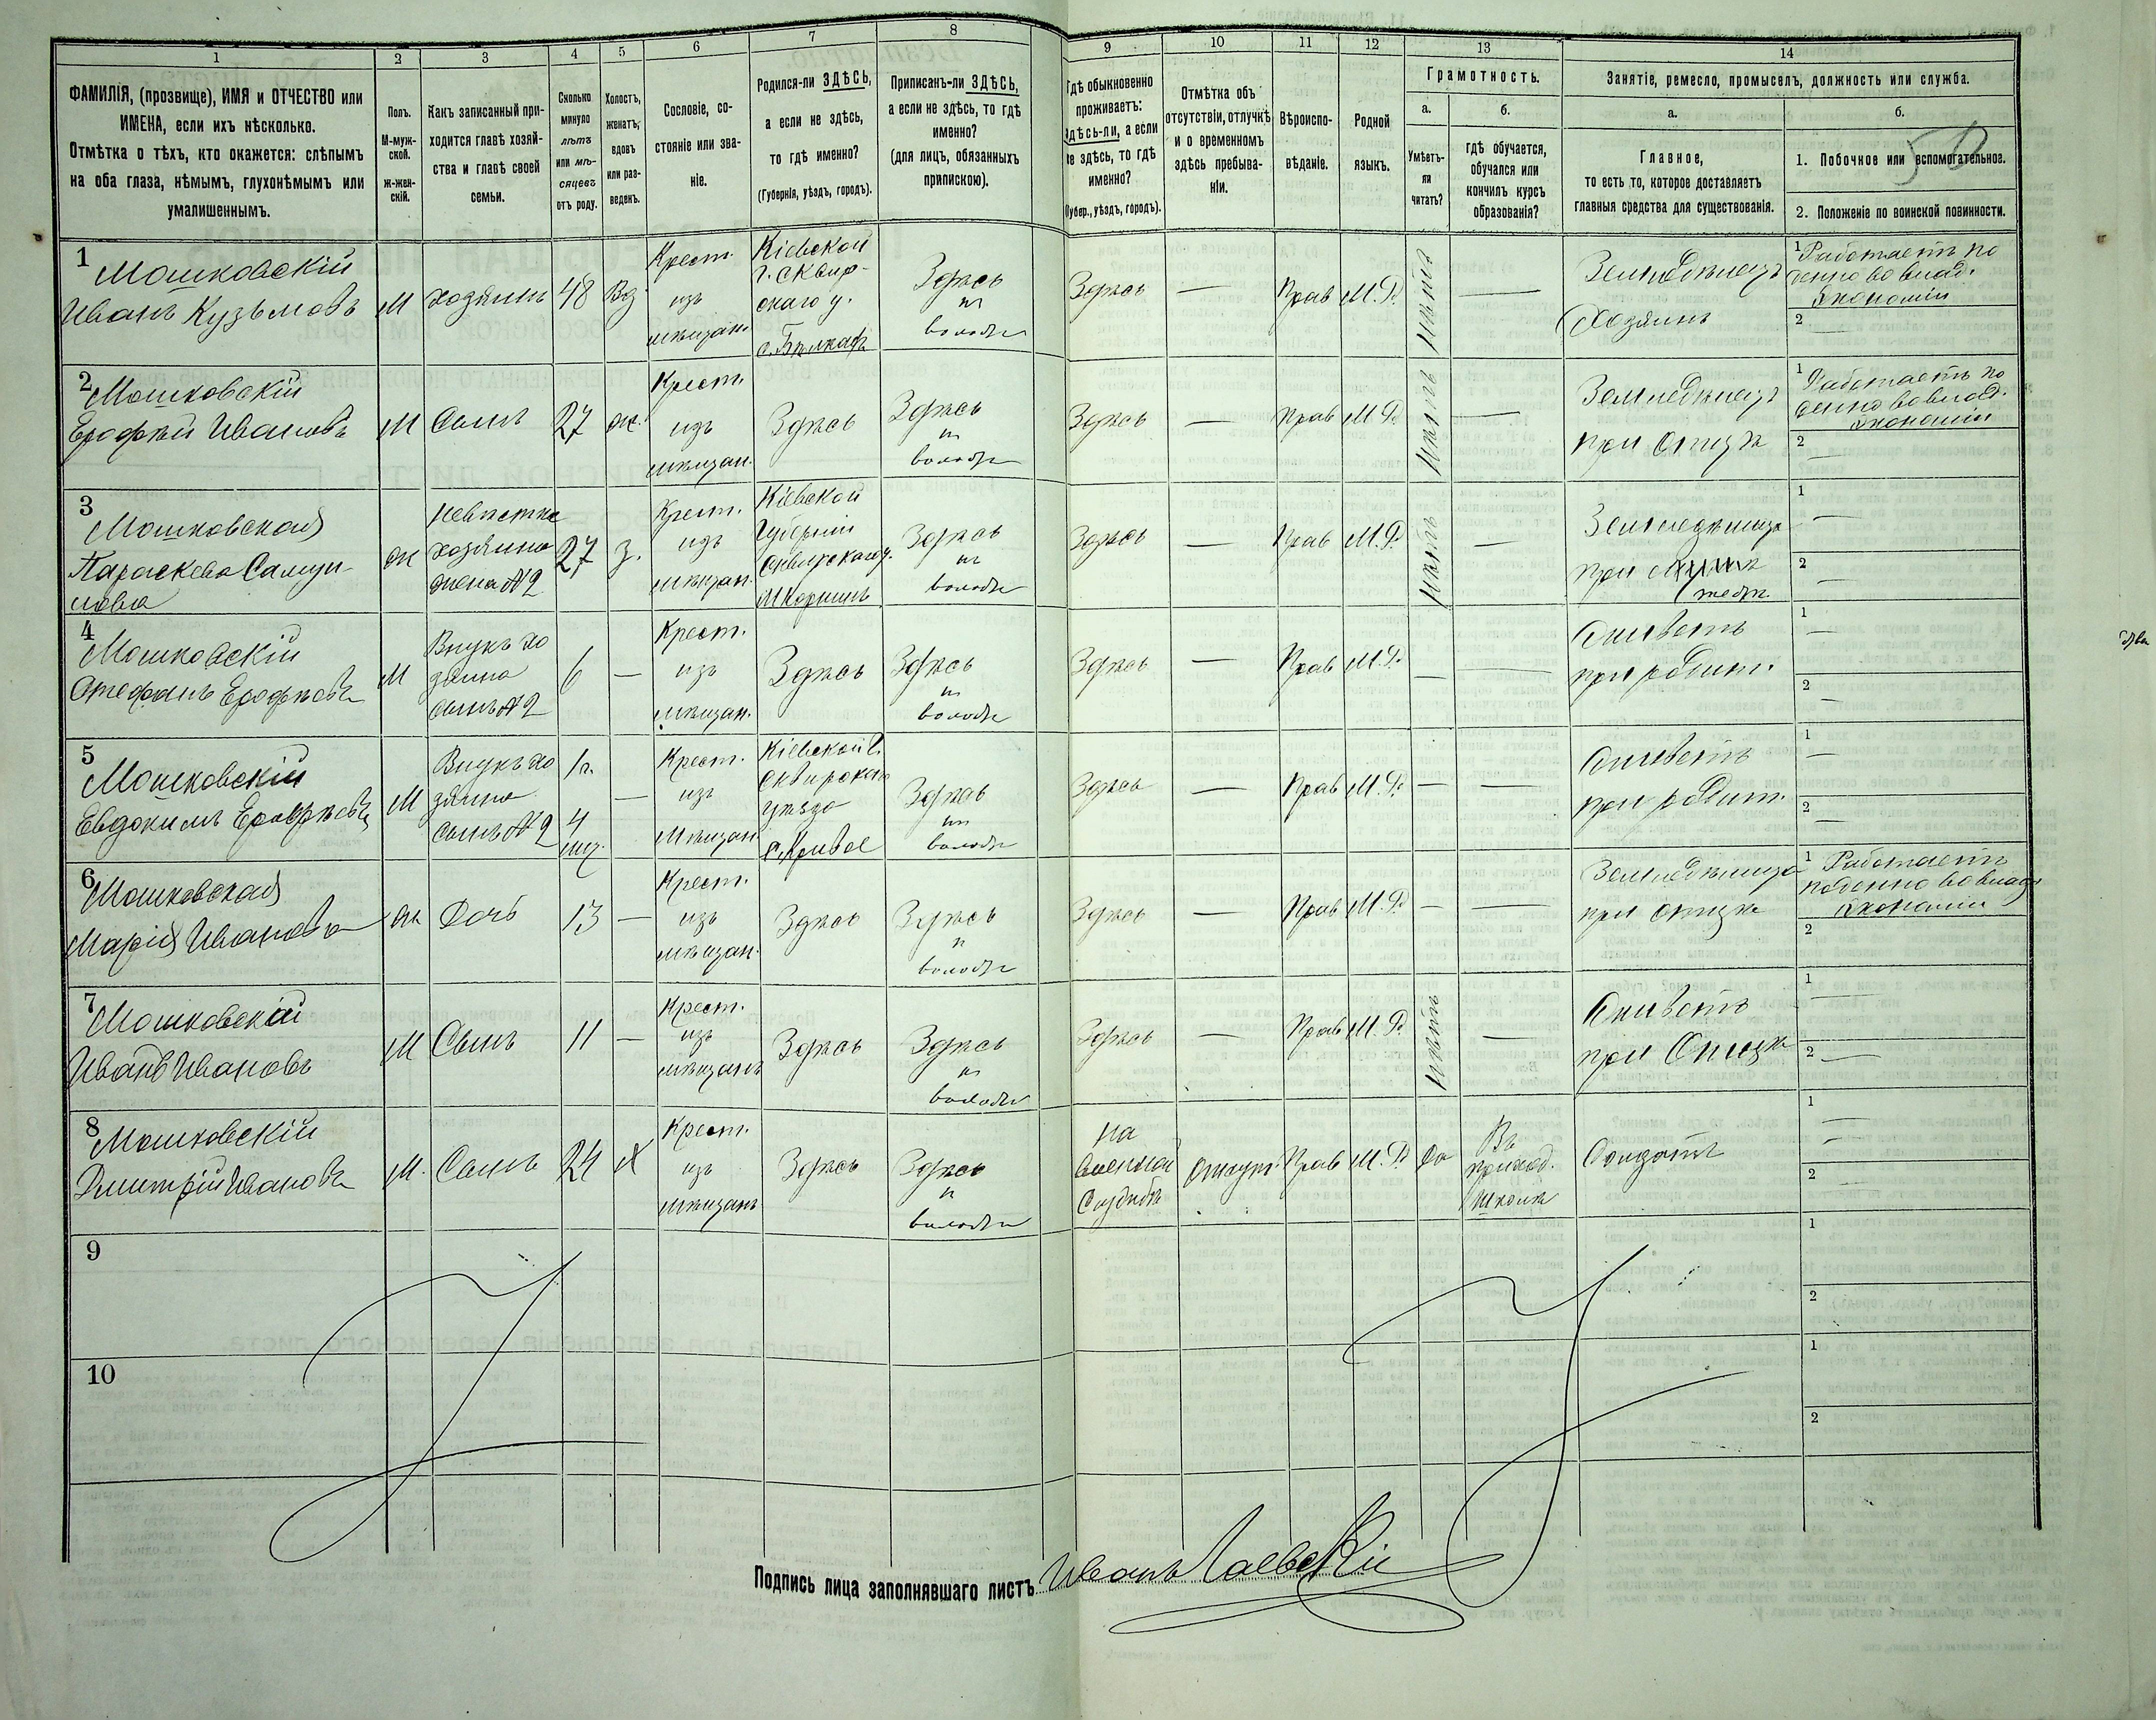 1
2
3
4
5
6
7
8
9
10
11
12
13
14
ФАМИЛІЯ, (прозвище), ИМЯ и ОТЧЕСТВО или
ИМЕНА, если ихъ нѣсколько.
Отмѣтка о тѣхъ, кто окажется: слѣпымъ
на оба глаза, нѣмымъ, глухонѣмымъ или
умалишеннымъ.
Полъ.
М-муж-
ской.
ж-жен-
скій.
Какъ записанный при-
ходится главѣ хозяй-
ства и главѣ своей
семьи.
Сколько
минуло
лѣтъ
или мѣ-
сяцевъ
отъ роду.
Холостъ,
женатъ,
вдовъ
или раз-
веденъ.
Сословіе, со-
стояніе или зва-
ніе.
Родился-ли ЗДѢСЬ,
а если не здѣсь,
то гдѣ именно?
(Губернія, уѣздъ, городъ).
Приписанъ-ли ЗДѢСЬ,
а если не здѣсь, то гдѣ
именно?
(для лицъ, обязанныхъ
припискою).
Гдѣ обыкновенно
проживаетъ:
здѣсь-ли, а если
не здѣсь, то гдѣ
именно?
(Губер., уѣздъ, городъ).
Отмѣтка объ
отсутствіи, отлучкѣ
и о временномъ
здѣсь пребыва-
ніи.
Вѣроиспо-
вѣданіе.
Родной
языкъ.
Грамотность.
а.
Умѣетъ-
ли
читать?
б.
гдѣ обучается,
обучался или
кончилъ курсъ
образованія?
Занятіе, ремесло, промыселъ, должность или служба.
а.
Главное,
то есть то, которое доставляетъ
главныя средства для существованія.
б.
50
1. Побочное или вспомогательное.
2. Положеніе по воинской повинности.
1
Мошковскій
Иванъ Кузьмовъ
М
хозяинъ
48
Вд
Крест.
изъ
мѣщан.
Кіевской
г. Сквир-
скаго у.
Здѣсь
въ
волости
Здѣсь
—
Прав
М.Р.
нѣтъ
—
Земледѣлецъ
Хозяинъ
1 Работаетъ по
денно во влад.
Экономіи
2 —
2
Мошковскій
Ерофѣй Ивановъ
М
Сынъ
27
ж.
Крест.
изъ
мѣщан.
Здѣсь
Здѣсь
въ
волости
Здѣсь
—
Прав
М.Р.
нѣтъ
—
Земледѣлецъ
при отцѣ
1 Работаетъ по
денно во влад.
Экономіи
2 —
3
Мошковская
Параскева Самуи-
лова
ж
невѣстка
хозяина
жена №2
27
з.
Крест.
изъ
мѣщан.
Кіевской
Губерніи
Сквирскаго у.
Здѣсь
въ
волости
Здѣсь
—
Прав
М.Р.
нѣтъ
—
Земледѣлица
при
1 —
2 —
4
Мошковскій
Стефанъ Ерофѣевъ
М
Внукъ хо
зяина
сынъ №2
6
—
Крест.
изъ
мѣщан.
Здѣсь
Здѣсь
въ
волости
Здѣсь
—
Прав
М.Р.
—
—
Живетъ
при родит.
1 —
2 —
5
Мошковскій
Евдокимъ Ерофѣевъ
М
Внукъ хо
зяина
сынъ №2
1 г.
4
мѣс.
—
Крест.
изъ
мѣщан
Кіевской г.
Сквирскаго
уѣзда
с. Кривое
Здѣсь
въ
волости
Здѣсь
—
Прав
М.Р.
—
—
Живетъ
при родит.
1 —
2 —
6
Мошковская
Марія Иванова
ж
Дочь
13
—
Крест.
изъ
мѣщан.
Здѣсь
Здѣсь
въ
волости
Здѣсь
—
Прав
М.Р.
—
—
Земледѣлица
при отцѣ
1 Работаетъ
поденно во влад
Экономіи
2
7
Мошковскій
Иванъ Ивановъ
М
Сынъ
11
—
Крест.
изъ
мѣщанъ
Здѣсь
Здѣсь
въ
волости
Здѣсь
—
Прав
М.Р.
нѣтъ
—
Живетъ
при Отцѣ
1 —
2 —
8
Мошковскій
Дмитрій Ивановъ
М.
Сынъ
24
х
Крест.
изъ
мѣщанъ
Здѣсь
Здѣсь
въ
волости
На
военной
Службѣ
Отсут.
Прав
М.Р.
да
Въ
приход.
школѣ
Солдатъ
1 —
2 —
9
1
2
10
1
2
Подпись лица заполнявшаго листъ Иванъ